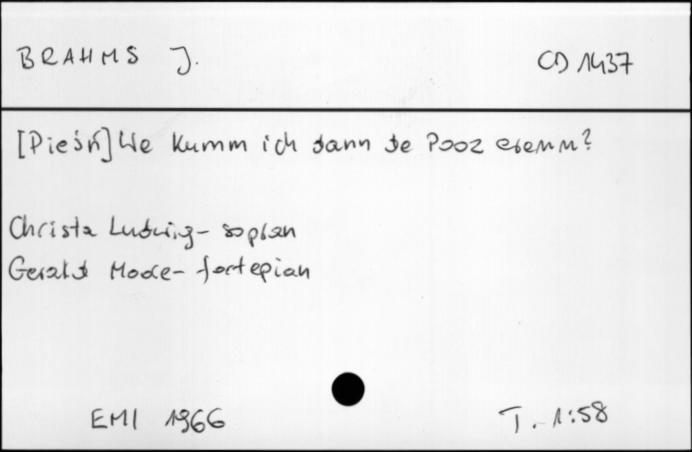 BRAHMS J. CD 1437
[Pieśń] We kumm ich dann de Pooz erenn?
Christa Ludwig - sopran
Gerald Moore - fortepian
EMI 1966 T. 1:58